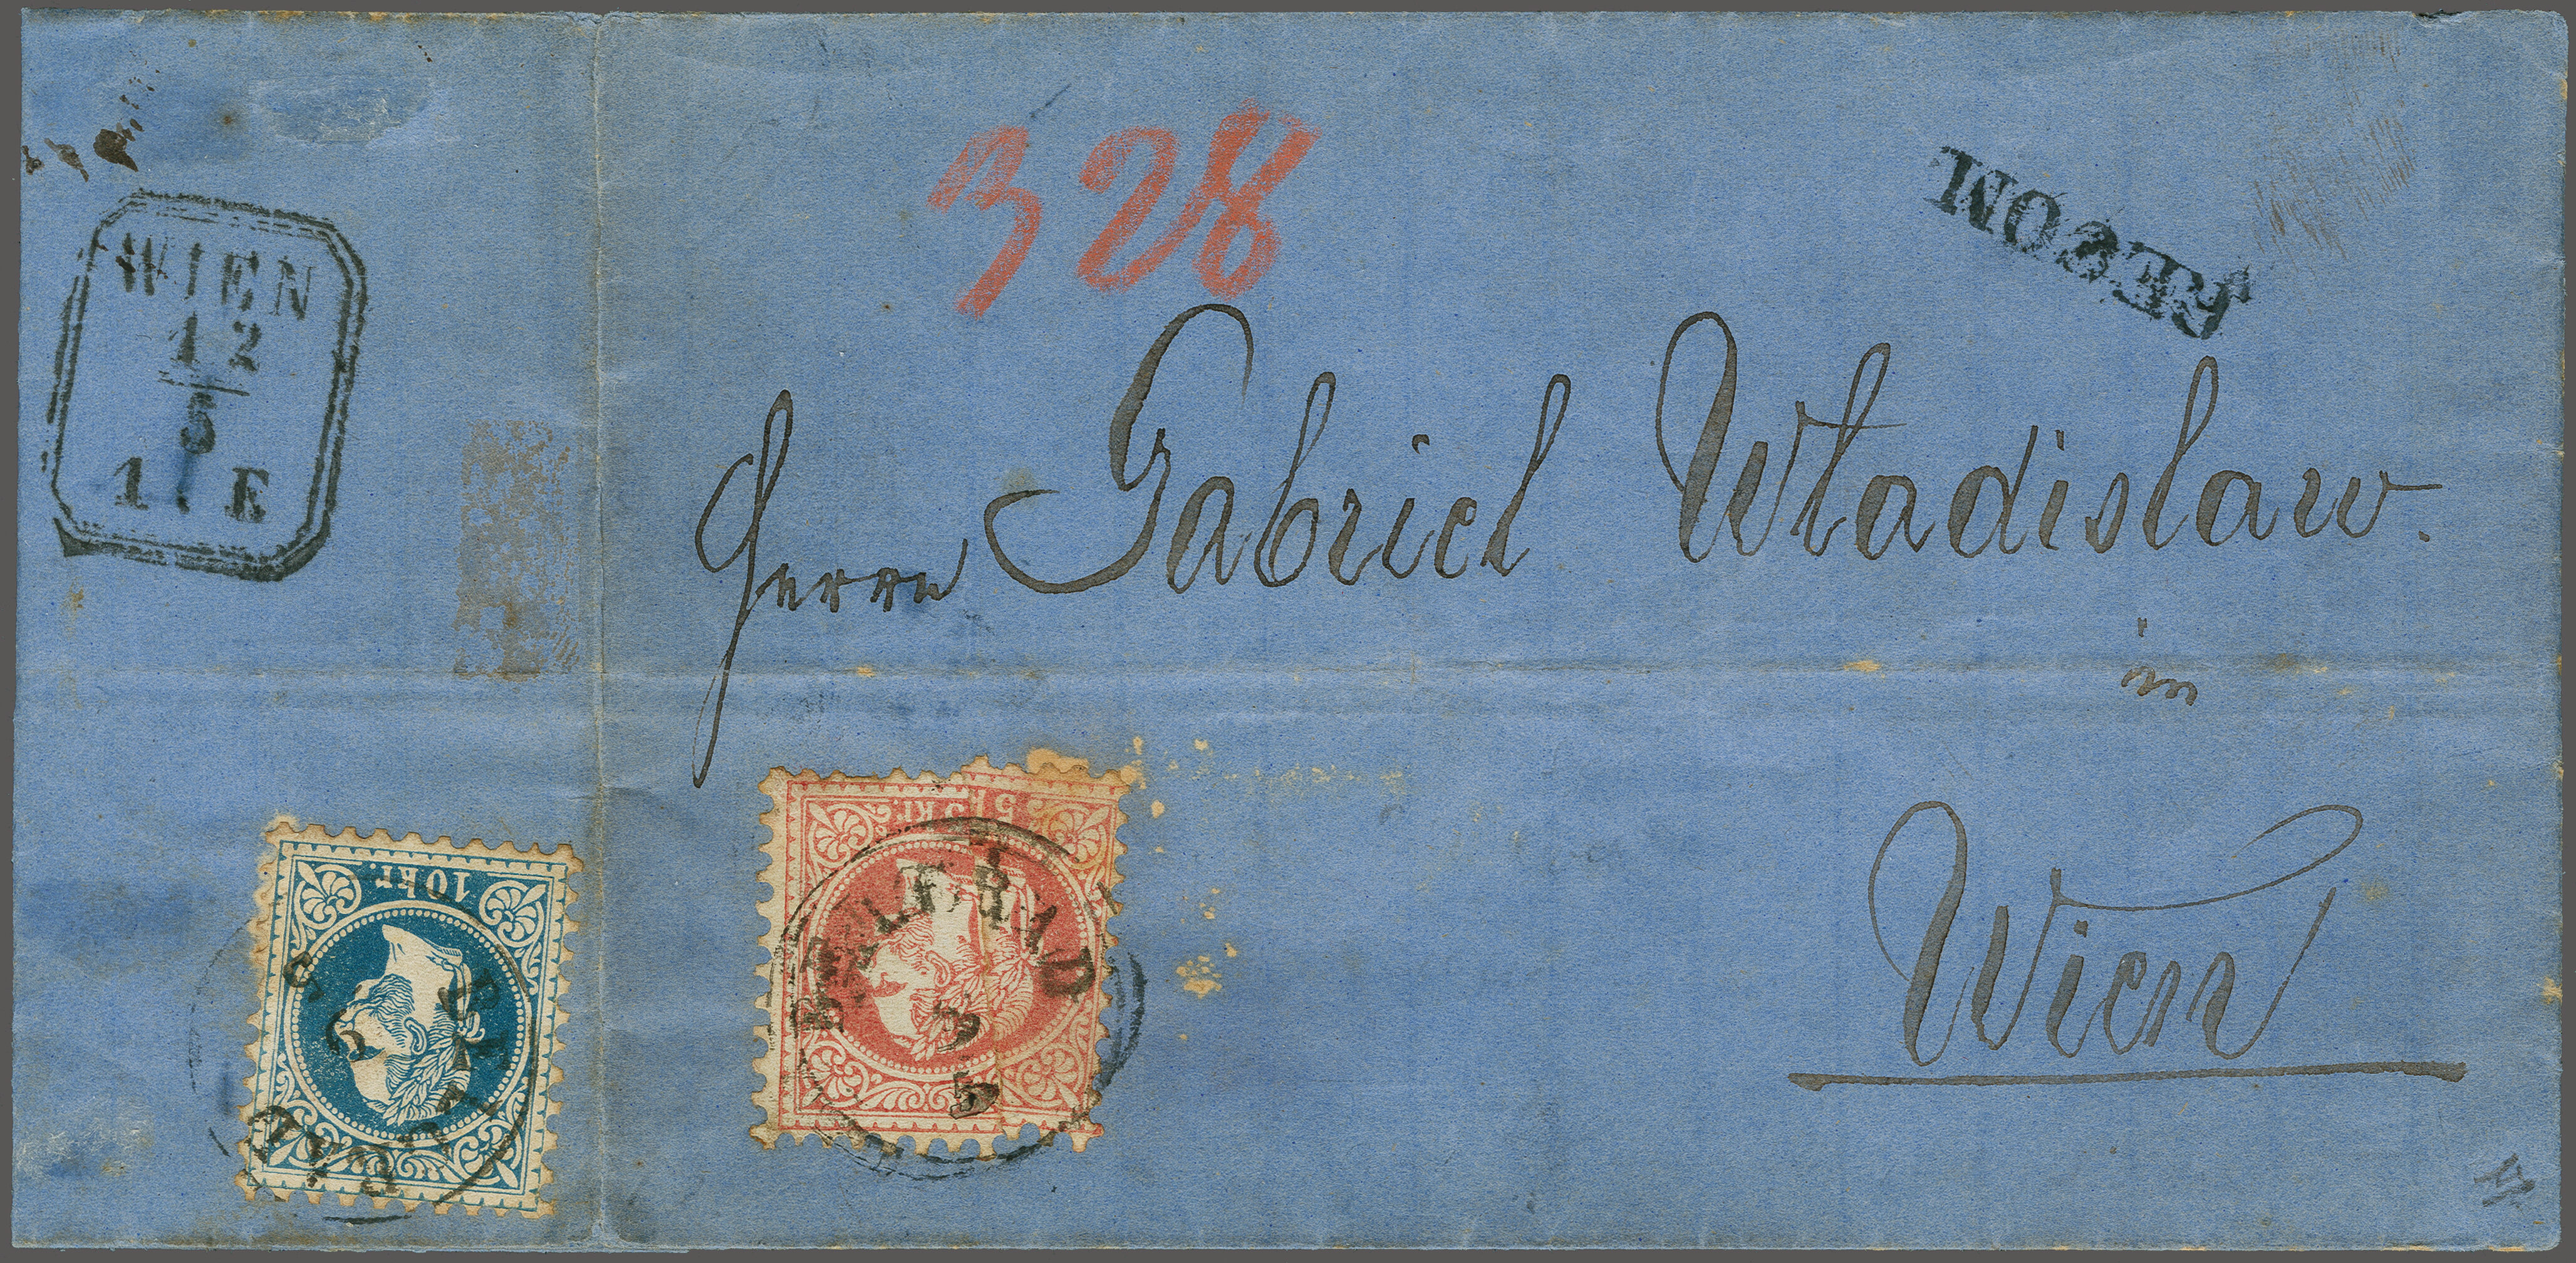 328
RECOM.
WIEN
12
5
1. E
Herrn Gabriel Wladislaw.
in
Wien
10 kr.
5 kr. 5
BELGRAD
3
5